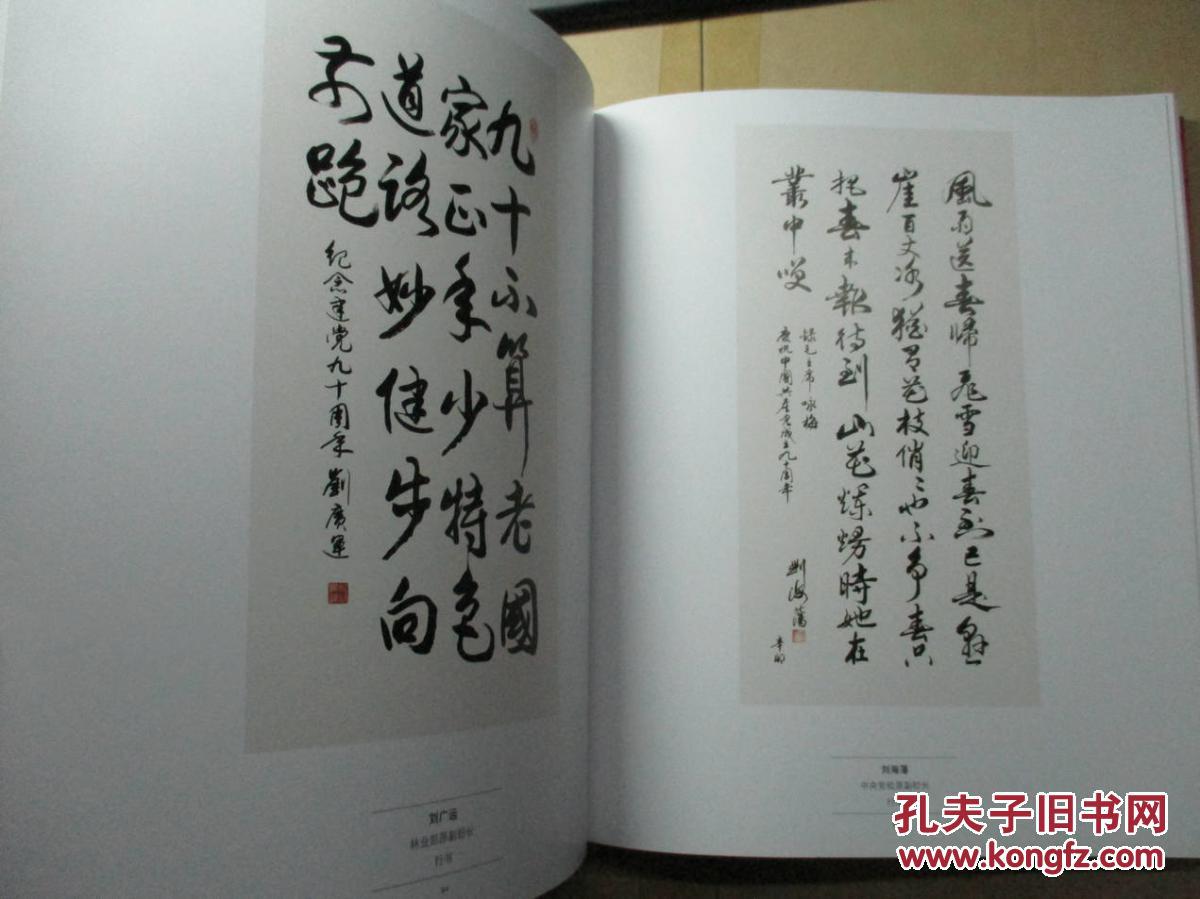 九十不算老國
家正年少特色
道路妙健步向
前跑
紀念建党九十周年 劉廣運
刘广运
林业部原副部长
行书
風雨送春歸飛雪迎春到已是懸
崖百丈冰猶有花枝俏々也不争春只
把春来報待到山花爛熳時她在
叢中笑
録毛主席咏梅
慶祝中國共产党成立九十周年
劉海藩
辛卯
刘海藩
中央党校原副校长
孔夫子旧书网
www.kongfz.com